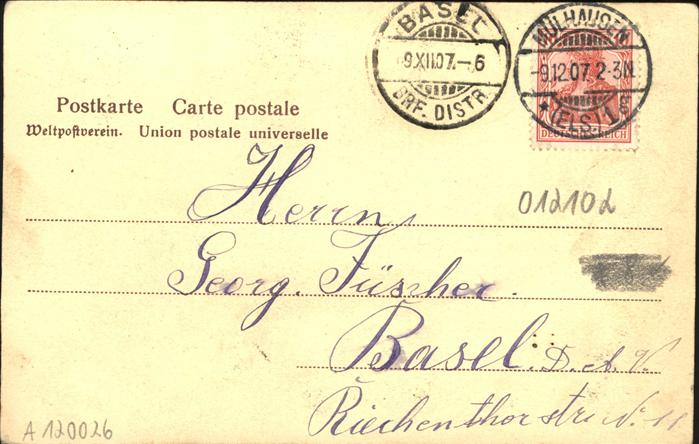 BASEL
9.XII.07.-6
BRF. DISTR.
MÜLHAUSEN
-9.12.07. 2-3N.
* (ELS.) 1 g
DEUTSCHES REICH
Postkarte Carte postale
Weltpostverein. Union postale universelle
012102
Herrn
Georg. Füscher.
Basel.
Riechenthorstr. No. 11
A 120026